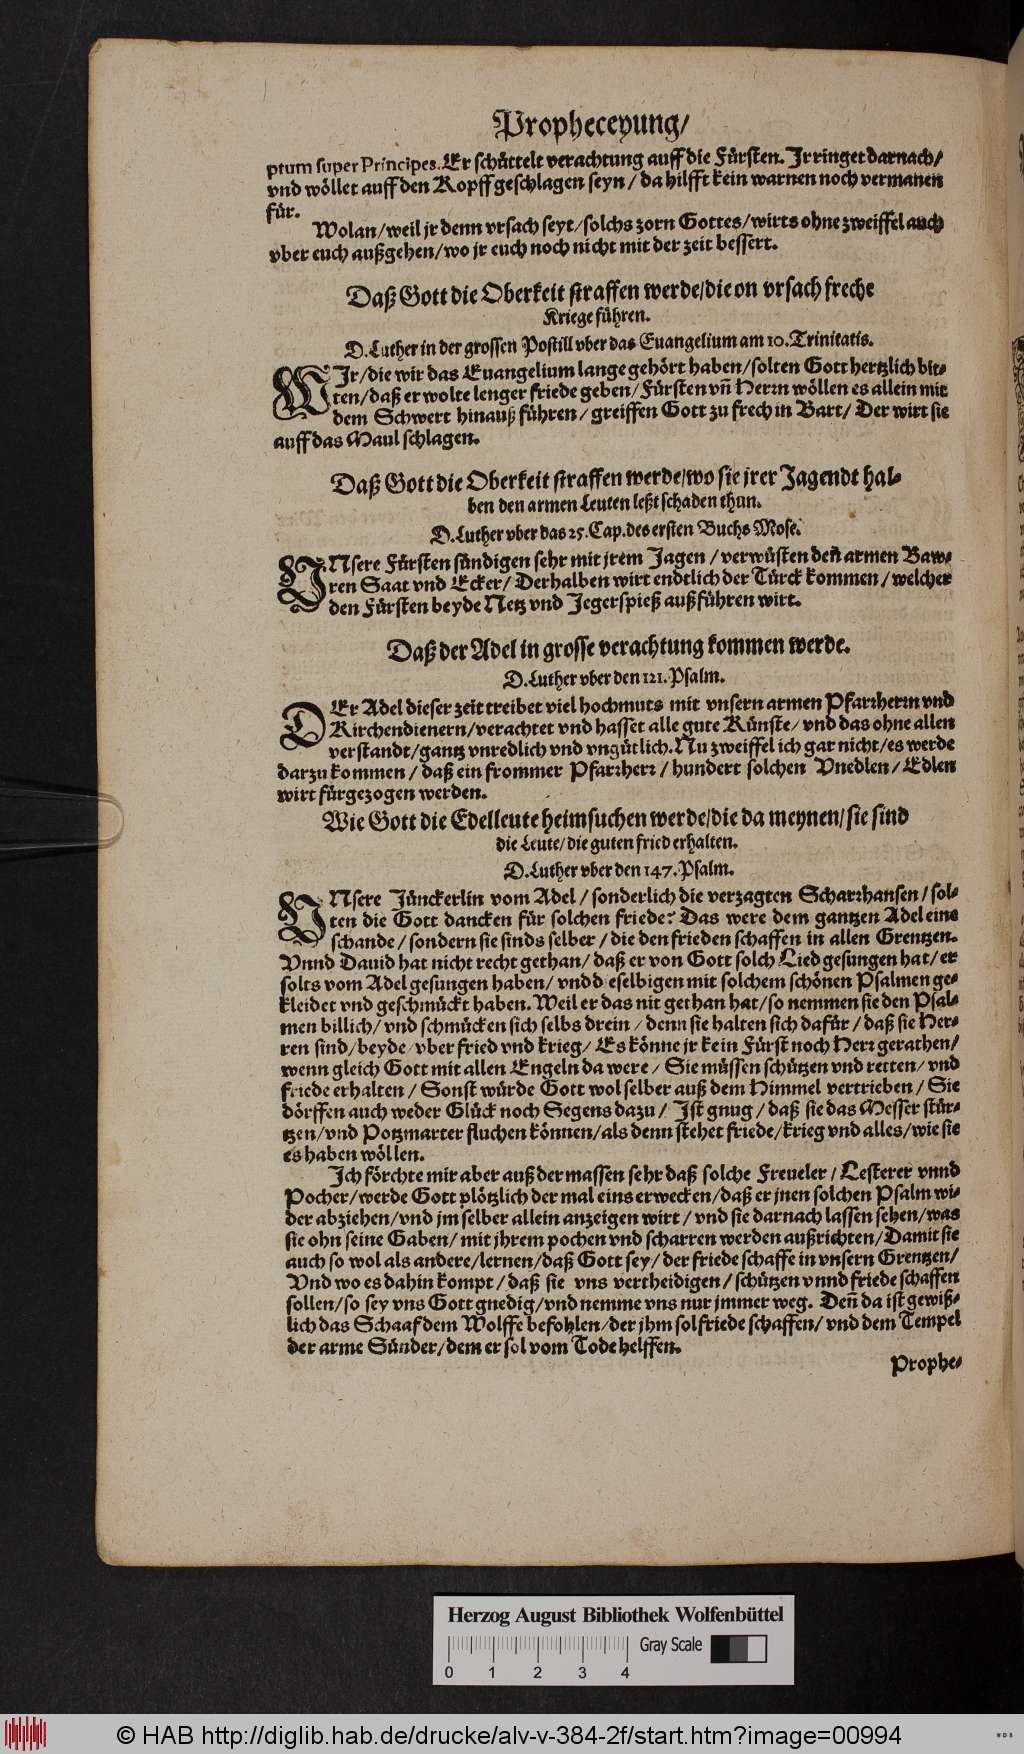 Propheceyung/
ptum super Principes. Er schüttelt verachtung auff die Fürsten. Jr ringet darnach/
vnd wöllet auff den Kopff geschlagen seyn / da hilfft kein warnen noch vermanen
für.
Wolan/weil jr denn vrsach seyt/solchs zorn Gottes/wirts ohne zweiffel auch
vber euch außgehen/wo jr euch noch nicht mit der zeit bessert.
Daß Gott die Oberkeit straffen werde/die on vrsach freche
Kriege führen.
D. Luther in der grossen Postill vber das Euangelium am 10. Trinitatis.
WJr/die wir das Euangelium lange gehört haben/solten Gott hertzlich bit-
ten/daß er wolte lenger friede geben/Fürsten vñ Herrn wöllen es allein mit
dem Schwert hinauß führen/ greiffen Gott zu frech in Bart/ Der wirt sie
auff das Maul schlagen.
Daß Gott die Oberkeit straffen werde/wo sie jrer Jagendt hal-
ben den armen Leuten leßt schaden thun.
D. Luther vber das 25. Cap. des ersten Buchs Mose.
VNsere Fürsten sündigen sehr mit jrem Jagen / verwüsten deñ armen Baw-
ren Saat vnd Ecker/ Derhalben wirt endtlich der Türck kommen / welcher
den Fürsten beyde Netz vnd Jegerspieß außführen wirt.
Daß der Adel in grosse verachtung kommen werde.
D. Luther vber den 121. Psalm.
DEr Adel dieser zeit treibet viel hochmuts mit vnsern armen Pfarrherrn vnd
Kirchendienern/verachtet vnd hasset alle gute Künste/ vnd das ohne allen
verstandt/gantz vnredlich vnd vngütlich. Nu zweiffel ich gar nicht/es werde
darzu kommen / daß ein frommer Pfarrherr / hundert solchen Vnedlen/ Edlen
wirt fürgezogen werden.
Wie Gott die Edelleute heimsuchen werde/die da meynen/sie sind
die Leute/die guten fried erhalten.
D. Luther vber den 147. Psalm.
VNsere Jünckerlin vom Adel / sonderlich die verzagten Scharrhansen/ sol-
ten die Gott dancken für solchen friede? Das were dem gantzen Adel eine
schande/ sondern sie sinds selber / die den frieden schaffen in allen Grentzen.
Vnnd Dauid hat nicht recht gethan/ daß er von Gott solch Lied gesungen hat/ er
solts vom Adel gesungen haben/ vnd dieselbigen mit solchem schönen Psalmen ge-
kleidet vnd geschmückt haben. Weil er das nit gethan hat/so nemmen sie den Psal-
men billich/ vnd schmücken sich selbs drein / denn sie halten sich dafür / daß sie Her-
ren sind/beyde/vber fried vnd krieg/ Es könne jr kein Fürst noch Herr gerathen/
wenn gleich Gott mit allen Engeln da were / Sie müssen schützen vnd retten/ vnd
friede erhalten / Sonst würde Gott wol selber auß dem Himmel vertrieben/ Sie
dörffen auch weder Glück noch Segens dazu/ Jst gnug / daß sie das Messer stür-
tzen/vnd Potzmarter fluchen können/als denn stehet friede/krieg vnd alles/wie sie
es haben wöllen.
Jch förchte mir aber auß der massen sehr daß solche Freueler / Lesterer vnnd
Pocher/werde Gott plötzlich der mal eins erwecken/daß er jnen solchen Psalm wi-
der abziehen/vnd jm selber allein anzeigen wirt / vnd sie darnach lassen sehen/was
sie ohn seine Gaben/ mit jhrem pochen vnd scharren werden außrichten/Damit sie
auch so wol als andere/lernen/daß Gott sey/ der friede schaffe in vnsern Grentzen/
Vnd wo es dahin kompt/ daß sie vns vertheidigen/ schützen vnnd friede schaffen
sollen/so sey vns Gott gnedig/vnd nemme vns nur jmmer weg. Deñ da ist gewiß-
lich das Schaaf dem Wolffe befohlen/der jhm sol friede schaffen/ vnd dem Tempel
der arme Sünder/dem er sol vom Tode helffen.
Prophe-
Herzog August Bibliothek Wolfenbüttel
Gray Scale
0 1 2 3 4
© HAB http://diglib.hab.de/drucke/alv-v-384-2f/start.htm?image=00994